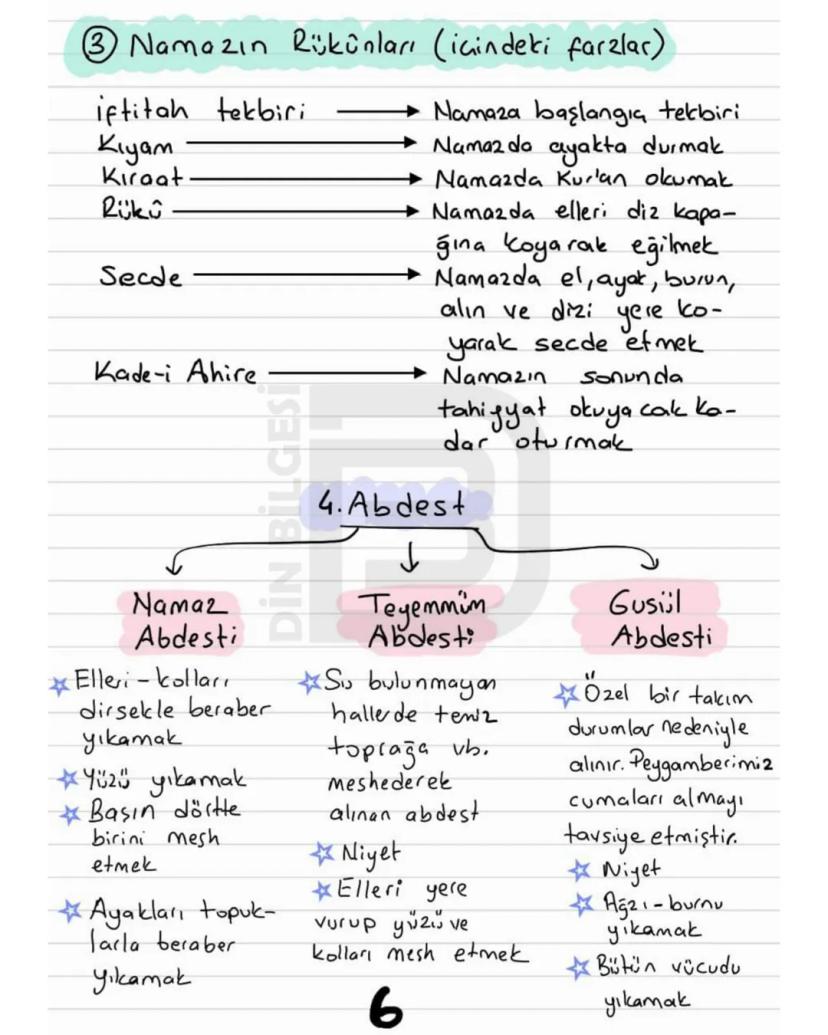 ③ Namazın Rükûnları (içindeki farzlar)
İftitah tekbiri → Namaza başlangıç tekbiri
Kıyam → Namazda ayakta durmak
Kıraat → Namazda Kur'an okumak
Rükû → Namazda elleri diz kapa-
ğına koyarak eğilmek
Secde → Namazda el, ayak, burun,
alın ve dizi yere ko-
yarak secde etmek
Kade-i Ahire → Namazın sonunda
tahiyyat okuyacak ka-
dar oturmak
DİN BİLGESİ
4. Abdest
Namaz
Abdesti
☆ Elleri - kolları
dirsekle beraber
yıkamak
☆ Yüzü yıkamak
☆ Başın dörtte
birini mesh
etmek
☆ Ayakları topuk-
larla beraber
yıkamak
Teyemmüm
Abdesti
☆ Su bulunmayan
hallerde temiz
toprağa vb.
meshederek
alınan abdest
☆ Niyet
☆ Elleri yere
vurup yüzü ve
kolları mesh etmek
Gusül
Abdesti
☆ Özel bir takım
durumlar nedeniyle
alınır. Peygamberimiz
cumaları almayı
tavsiye etmiştir.
☆ Niyet
☆ Ağzı - burnu
yıkamak
☆ Bütün vücudu
yıkamak
6